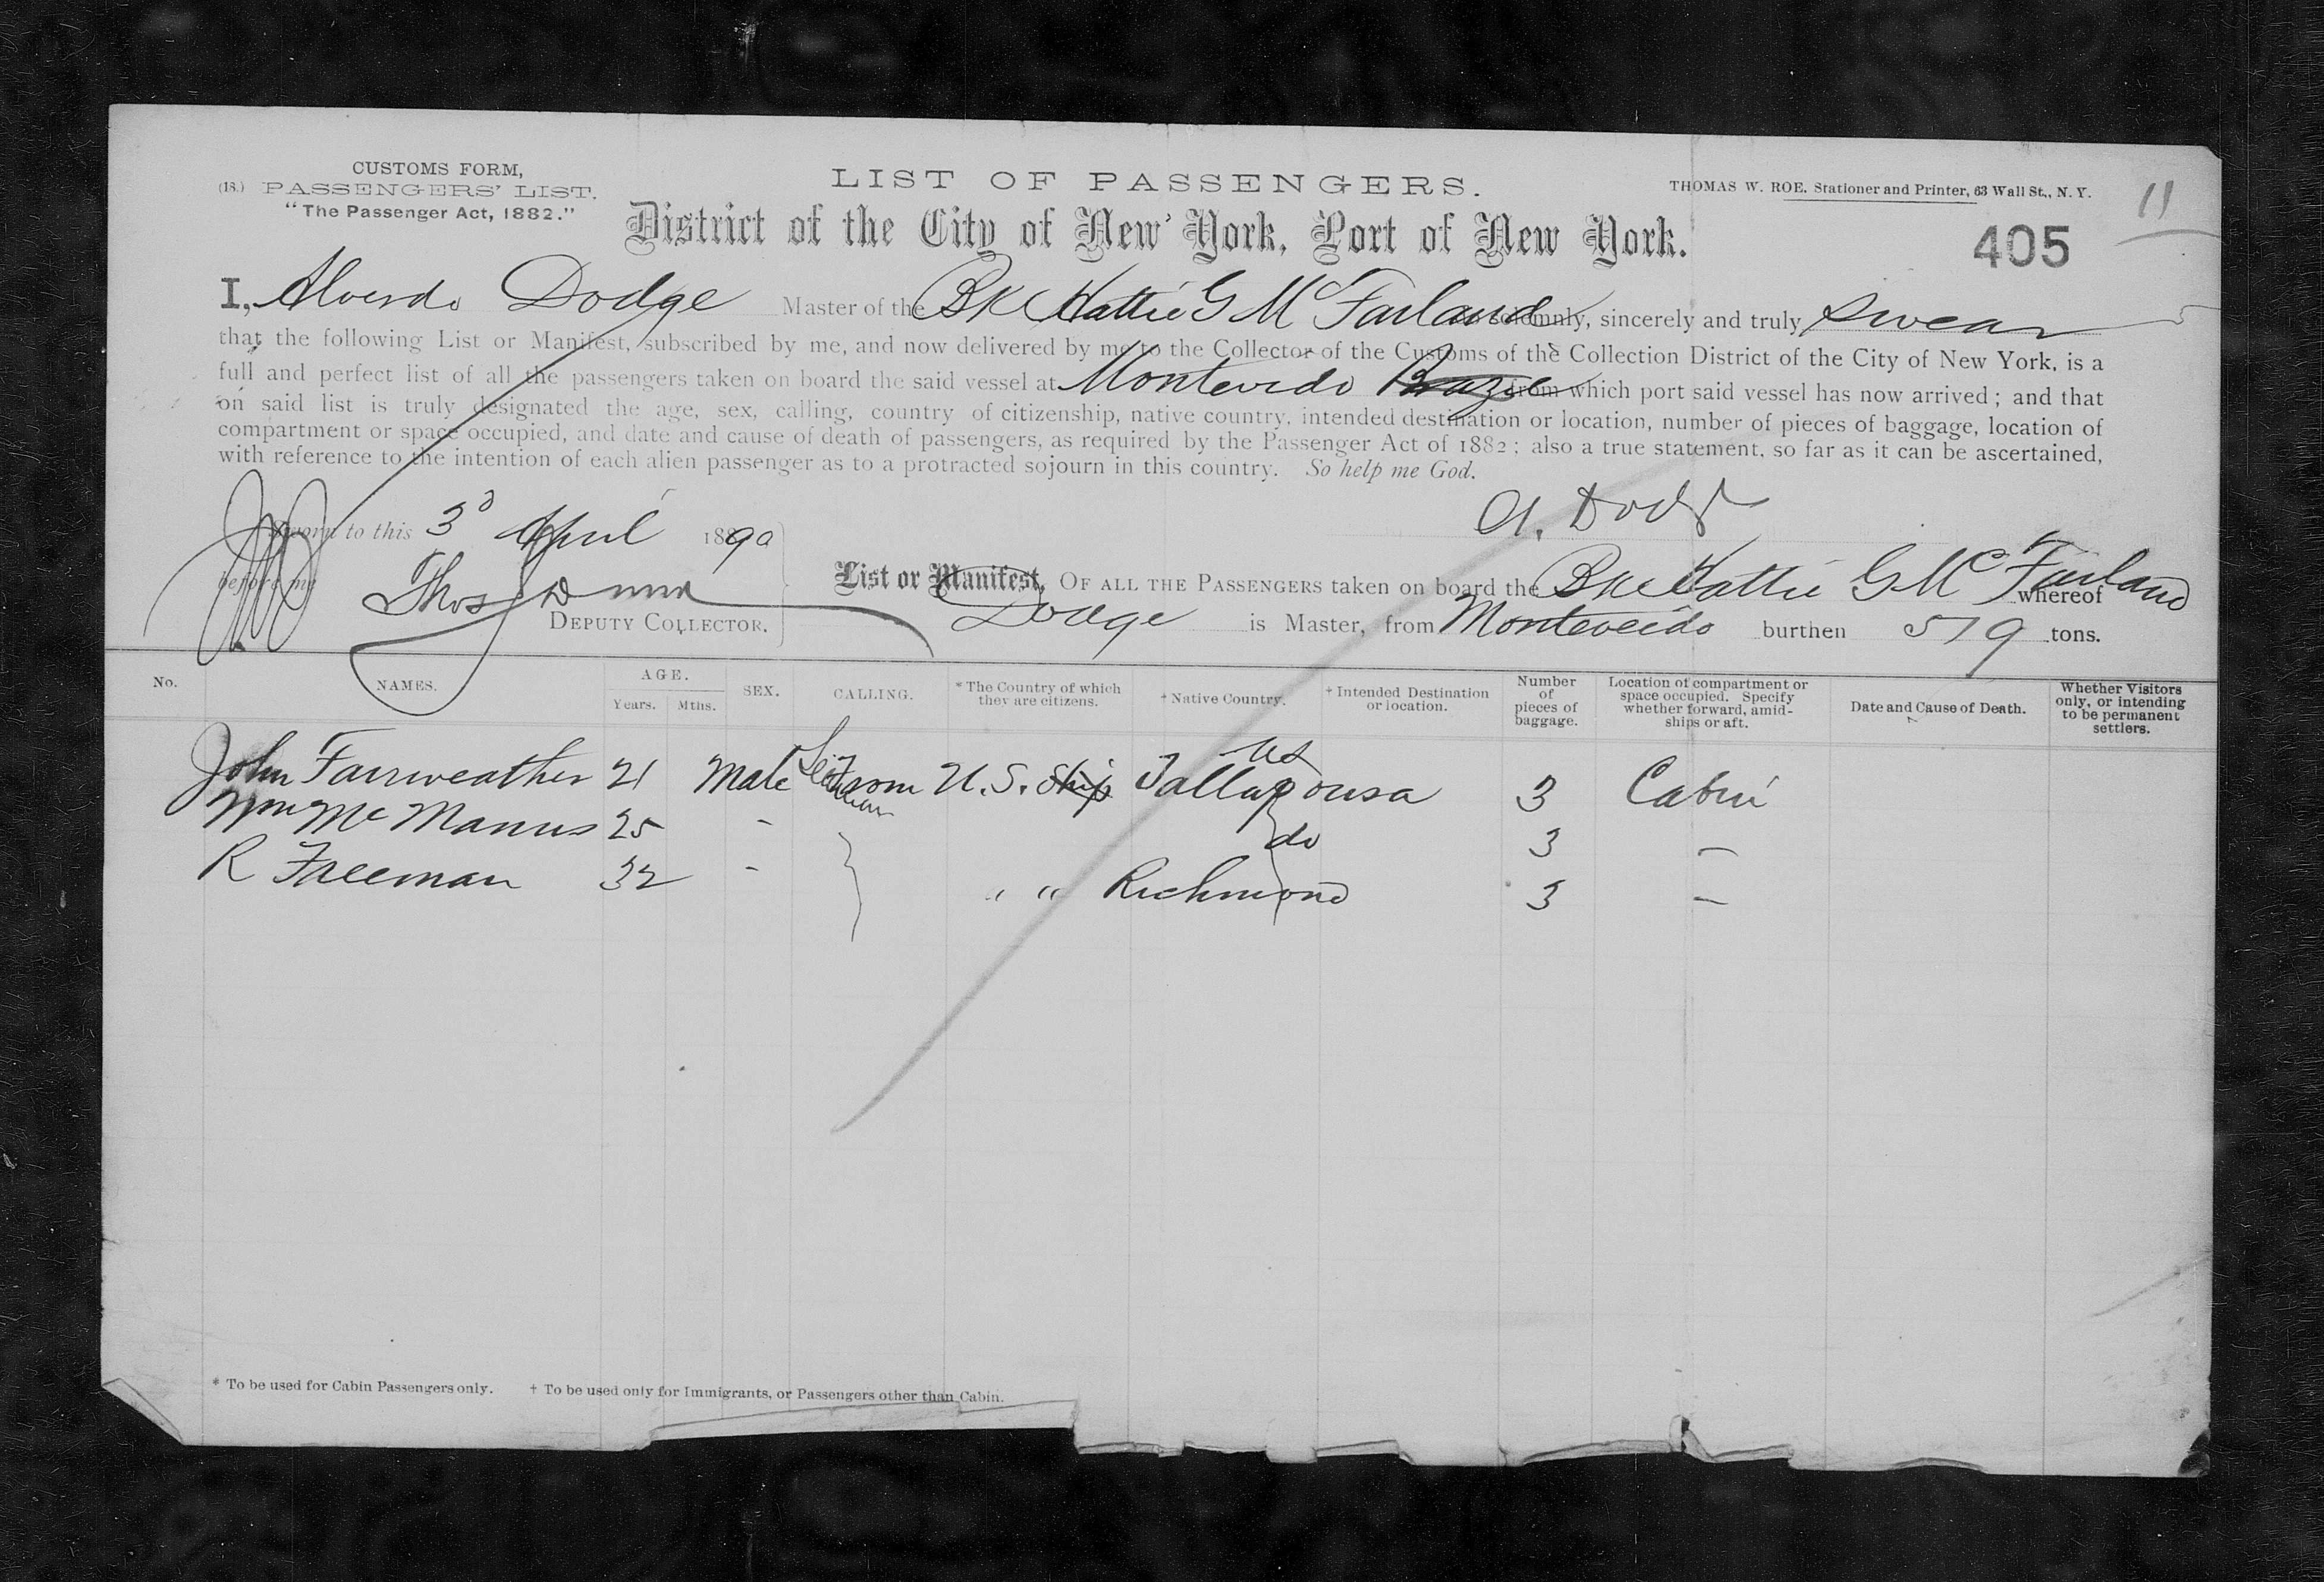 CUSTOMS FORM,
(18.) PASSENGERS' LIST.
"The Passenger Act, 1882."
LIST OF PASSENGERS.
THOMAS W. ROE. Stationer and Printer, 63 Wall St., N. Y.
11
District of the City of New York, Port of New York.
405
I, Alverdo Dodge Master of the Bk Hattie G McFarland do solemnly, sincerely and truly swear
that the following List or Manifest, subscribed by me, and now delivered by me to the Collector of the Customs of the Collection District of the City of New York, is a
full and perfect list of all the passengers taken on board the said vessel at Montevedo from which port said vessel has now arrived; and that
on said list is truly designated the age, sex, calling, country of citizenship, native country, intended destination or location, number of pieces of baggage, location of
compartment or space occupied, and date and cause of death of passengers, as required by the Passenger Act of 1882; also a true statement, so far as it can be ascertained,
with reference to the intention of each alien passenger as to a protracted sojourn in this country. So help me God.
Sworn to this 3d April 1890
A. Dodge
before me Thos Dunn
DEPUTY COLLECTOR.
List or Manifest, OF ALL THE PASSENGERS taken on board the Bk Hattie G McFarland whereof
Dodge is Master, from Monteveido burthen 519 tons.
No. NAMES. AGE. Years. Mths. SEX. CALLING. * The Country of which they are citizens. † Native Country. † Intended Destination or location. Number of pieces of baggage. Location of compartment or space occupied. Specify whether forward, amidships or aft. Date and Cause of Death. Whether Visitors only, or intending to be permanent settlers.
US
John Fairweather 21 Male from U.S. Ship Tallapousa 3 Cabin
Wm McManus 25 - do 3 —
R Freeman 32 - " " Richmond 3 —
* To be used for Cabin Passengers only. † To be used only for Immigrants, or Passengers other than Cabin.